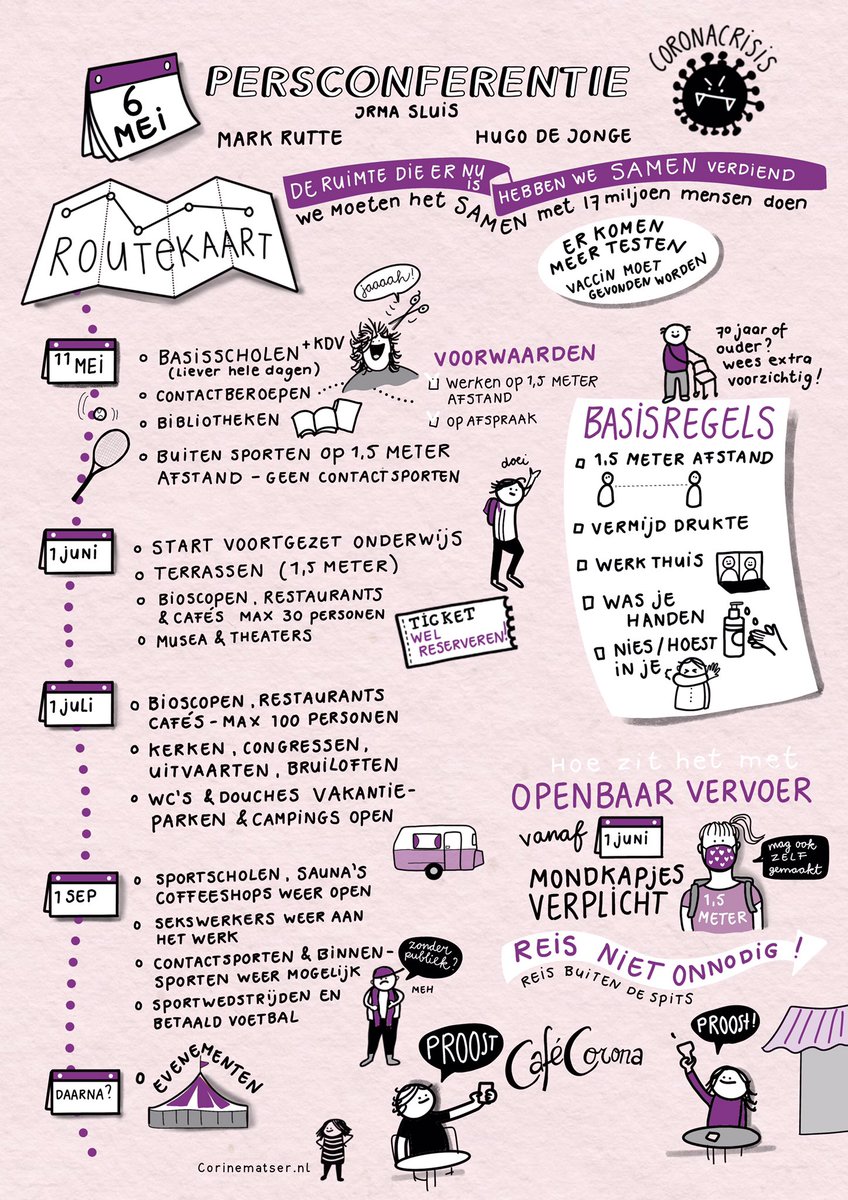 6
MEI
PERSCONFERENTIE
JRMA SLUIS
MARK RUTTE
HUGO DE JONGE
CORONACRISIS
DE RUIMTE DIE ER NU IS
HEBBEN WE SAMEN VERDIEND
WE MOETEN HET SAMEN MET 17 MILJOEN MENSEN DOEN
ROUTEKAART
ER KOMEN
MEER TESTEN
VACCIN MOET
GEVONDEN WORDEN
11 MEI
BASISSCHOLEN + KDV
(LIEVER HELE DAGEN)
CONTACTBEROEPEN
BIBLIOTHEKEN
BUITEN SPORTEN OP 1,5 METER
AFSTAND - GEEN CONTACTSPORTEN
jaaaah!
VOORWAARDEN
WERKEN OP 1,5 METER
AFSTAND
OP AFSPRAAK
70 jaar of
ouder?
wees extra
voorzichtig!
BASISREGELS
1,5 METER AFSTAND
VERMIJD DRUKTE
WERK THUIS
WAS JE
HANDEN
NIES/HOEST
IN JE
doei
1 JUNI
START VOORTGEZET ONDERWIJS
TERRASSEN (1,5 METER)
BIOSCOPEN, RESTAURANTS
& CAFÉS MAX 30 PERSONEN
MUSEA & THEATERS
TICKET
WEL
RESERVEREN!
1 JULI
BIOSCOPEN, RESTAURANTS
CAFÉS - MAX 100 PERSONEN
KERKEN, CONGRESSEN,
UITVAARTEN, BRUILOFTEN
WC'S & DOUCHES VAKANTIE-
PARKEN & CAMPINGS OPEN
Hoe zit het met
OPENBAAR VERVOER
vanaf 1 JUNI
MONDKAPJES
VERPLICHT
mag ook
ZELF
gemaakt
1,5
METER
REIS NIET ONNODIG!
REIS BUITEN DE SPITS
1 SEP
SPORTSCHOLEN, SAUNA'S
COFFEESHOPS WEER OPEN
SEKSWERKERS WEER AAN
HET WERK
CONTACTSPORTEN & BINNEN-
SPORTEN WEER MOGELIJK
SPORTWEDSTRIJDEN EN
BETAALD VOETBAL
zonder
publiek?
MEH
DAARNA?
EVENEMENTEN
PROOST
Café Corona
PROOST!
Corinematser.nl